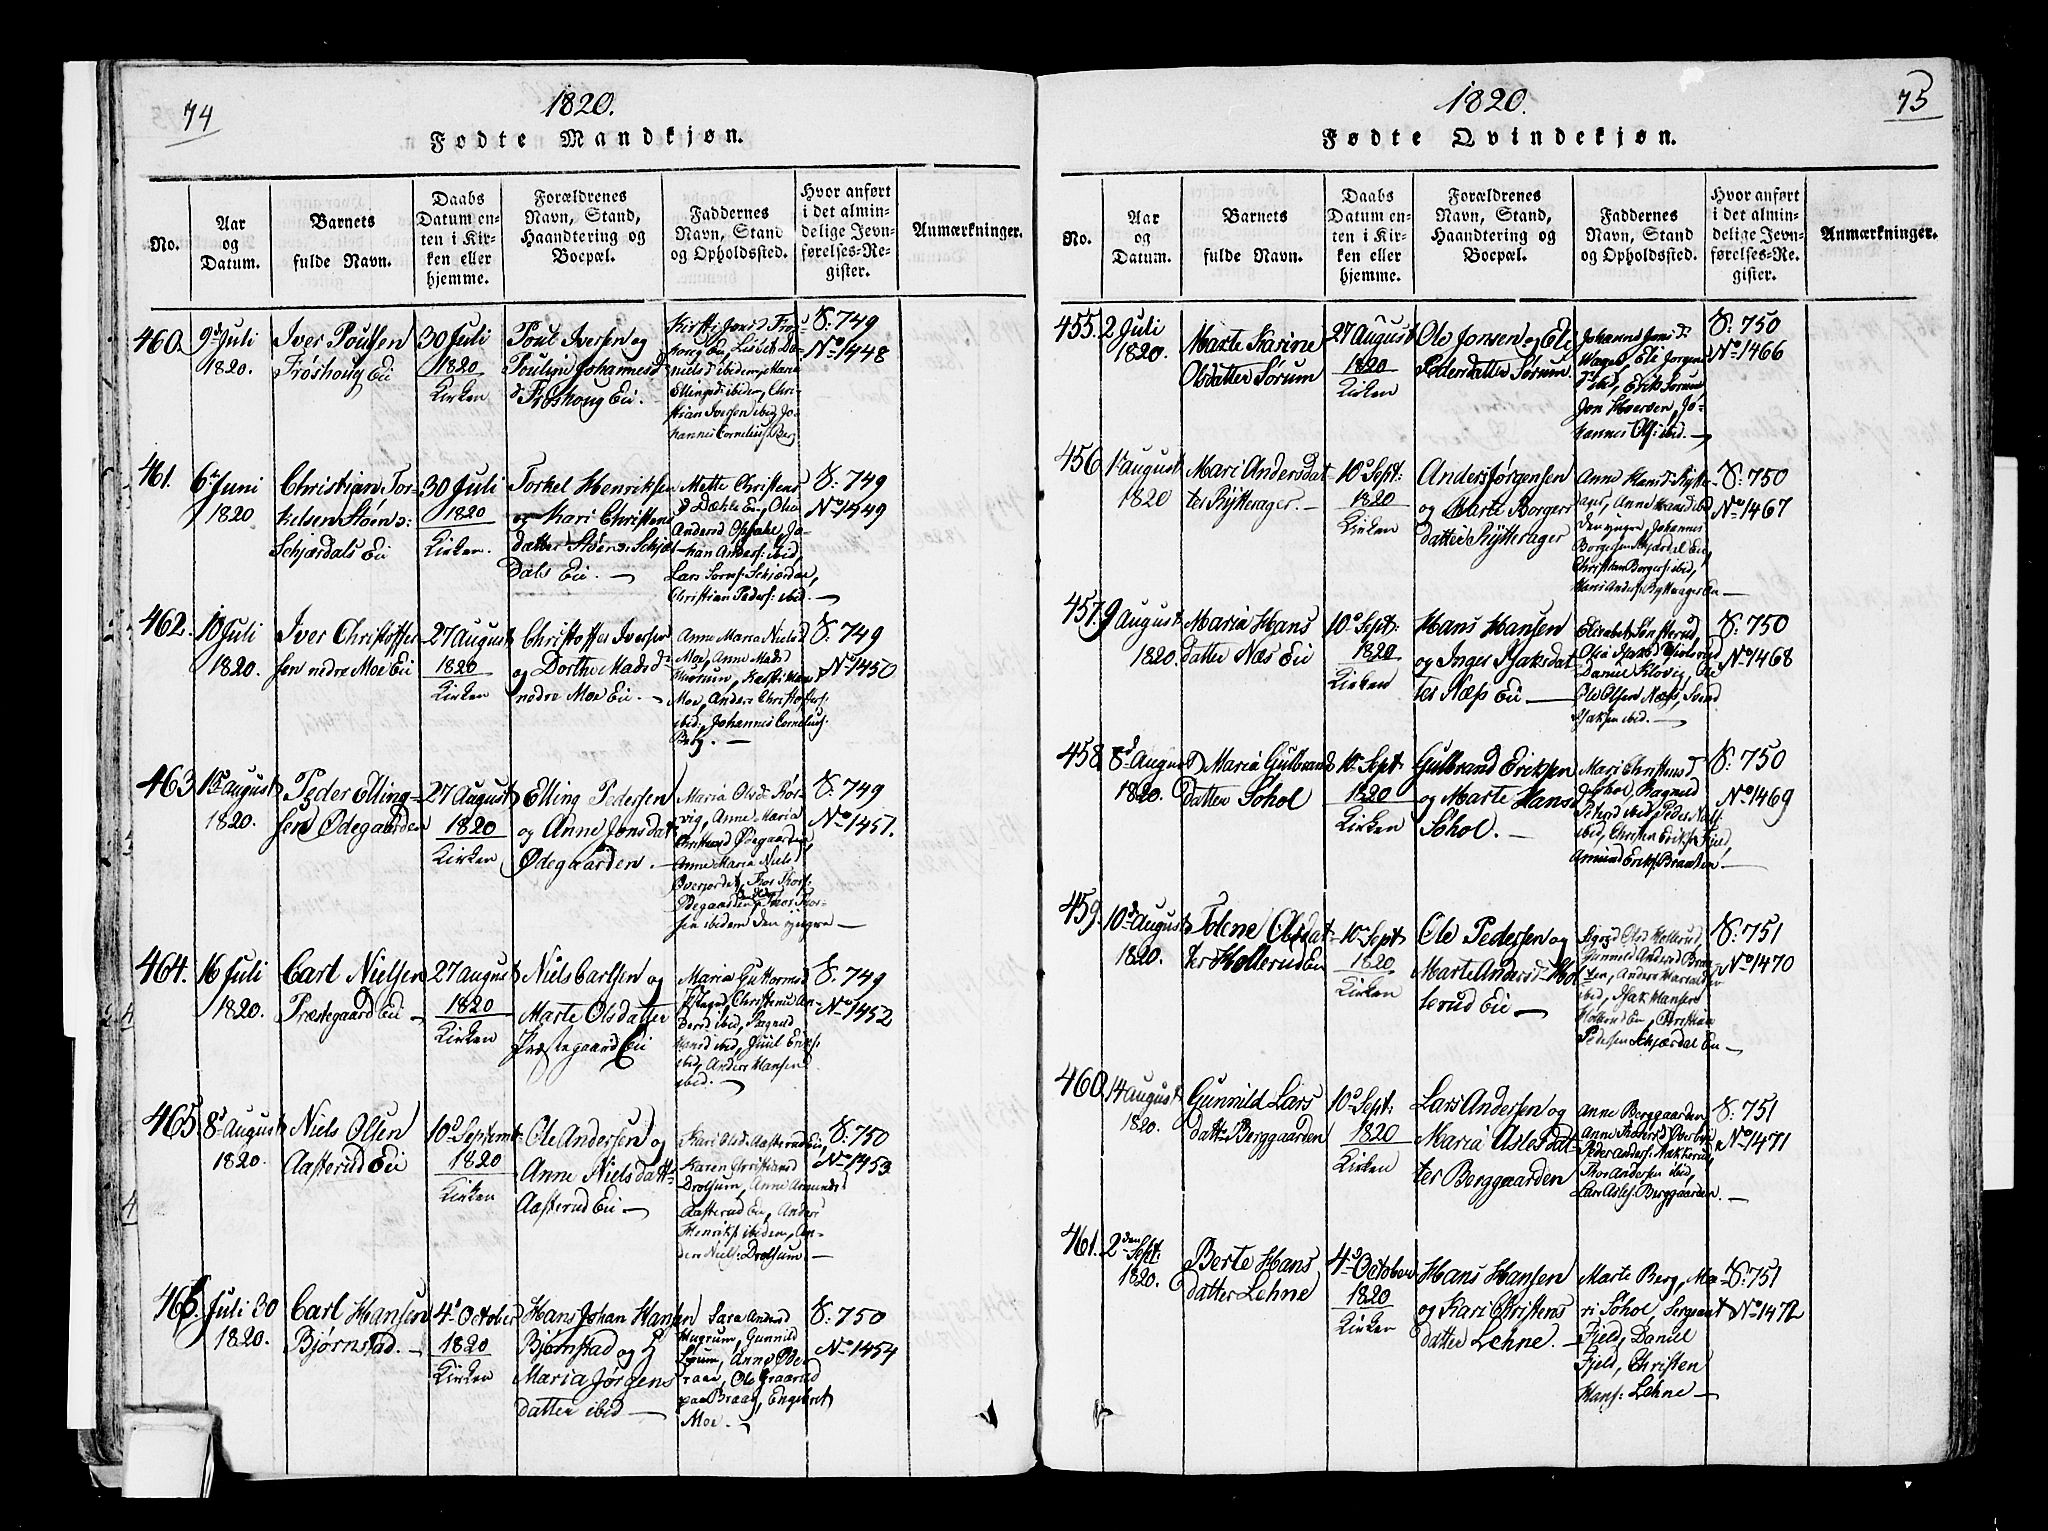 74
1820.
Fødte Mandkjøn.
No.
Aar
og
Datum.
Barnets
fulde Navn.
Daabs
Datum en-
ten i Kir-
ken eller
hjemme.
Forældrenes
Navn, Stand,
Haandtering og
Boepæl.
Faddernes
Navn, Stand
og Opholdssted.
Hvor anført
i det almin-
delige Jevn-
førelses-Re-
gister.
Anmærkninger.
460.
9d Juli
1820.
Iver Poulsen
Frøshoug Eii
30 Juli
1820
Kirken
Poul Iversen og
Pouline Johannesd
Frøshoug Eii.
Kirsti Jensd Frøs-
houg Eii, Lisbet Da-
nielsd ibidem, Mari
Ellingsd ibidem, Chri-
stian Iversen ibid, Jo-
hannes Cornelius Berg
S: 749
No 1448
461.
6te Juni
1820
Christian Tor-
kelsen Støen
Schjærdals Eii
30 Juli
1820
Kirken.
Torkel Henriksen
og Kari Christens
datter Støen Schjær-
dals Eii. —
Mette Christens
Dækle Eii, Olia
Andersd Opsahl, Jo-
han Anders: ibid
Lars Schjærdal,
Christian Peders: ibid. —
S: 749
No 1449
462.
10 Juli
1820.
Iver Christoffer
sen nedre Moe Eii
27 August
1820
Kirken
Christoffer Iversen
og Dorthe Madsd
nedre Moe Eii. —
Anne Maria Nielsd
Moe, Anne Madsd
Hurum, Kirsti Hans
Moe, Anders Christoffers:
ibid: Johannes Cornelius:
Berg. —
S: 749
No 1450
463
1ste August
1820.
Peder Elling-
sen Ødegaarden
27 August
1820
Kirken
Elling Pedersen
og Anne Jonsdat
Ødegaarden. —
Maria Olsd Røs-
vig, Anne Maria
Christensd Ødegaarden,
Anne Maria Niels
Overjordet, Thor Thors:
Ødegaarden, Thor Thor-
sen ibidem den yngre —
S: 749
No 1451.
464.
16 Juli
1820.
Carl Nielsen
Præstegaard Eii —
27 August
1820
Kirken
Niels Carlsen og
Marte Olsdatter
Præstegaard Eii
Maria Guttormsd
Christine An-
dersd ibid, Ragnild
Hansd ibid, Juul Eriks:
ibid, Anders Hansen
ibid. —
S: 749
No 1452
465.
8d August
1820.
Niels Olsen
Aasterud Eii
10d Septemb
1820
Kirken
Ole Andersen og
Anne Nielsdatt:
Aasterud Eii —
Kari Olsd Aasterud Eii,
Karen Christiansd
Drolsum, Anne Amunds
Aasterud Eii, Anders
Henriks ibidem, An-
ders Niels: Drolsum —
S: 750
No 1453
466.
Juli 30
1820.
Carl Hansen
Bjørnstad. —
4d October
1820
Kirken
Hans Johan Hansen
Bjørnstad og H
Maria Jørgens
datter ibid —
Sara Andersd
Hugrum, Gunnild
Sørum, Anne Ove
raae, Ole Graarud
paa Braae, Engebret
Moe. —
S: 750
No 1454
75
1820.
Fødte Qvindekjøn.
No.
Aar
og
Datum.
Barnets
fulde Navn.
Daabs
Datum en-
ten i Kir-
ken eller
hjemme.
Forældrenes
Navn, Stand,
Haandtering og
Boepæl.
Faddernes
Navn, Stand
og Opholdssted.
Hvor anført
i det almin-
delige Jevn-
førelses-Re-
gister.
Anmærkninger.
455.
2 Juli
1820.
Marte Karine
Olsdatter Sørum
27 August
1820
Kirken
Ole Jonsen og Eli
Pedersdatter Sørum
Johanne Jonsd:
Eli Jørgens
ibid, Erik Sørum
Jon Iversen, Jo-
hannes Ols: ibid. —
S: 750
No 1466
456
1te August
1820
Mari Andersdat
ter Rytterager. —
10d Sept:
1820
Kirken
Anders Jørgensen
og Marte Borgers
datter Rytterager
Anne Hansd Rytter-
ager, Anne Hansd ibid
den yngre, Johannes
Borgersen Skjærdal Eii,
Christian Borgers: ibid,
Hans Anders: Rytterager Eii —
S: 750
No 1467
457.
9 August
1820.
Maria Hans
datter Næs Eii
10d Sept:
1820
Kirken
Hans Hansen
og Inger Isaksdat
ter Næss Eii —
Elisabet Sønsterud,
Olia Isaksd
Daniel Klovig,
Ole Olsen Næss, Svend
Isaksen ibid. —
S: 750
No 1468
458.
8d August
1820.
Maria Gulbrand
datter Sohol
10d Sept
1820
Kirken
Gulbrand Eriksen
og Marte Hansd
Sohol. —
Mari Christensd
Sohol, Ragnild
ibid, Peder
ibid, Christen Eriks Fjeld,
Amund Eriks Braaten —
S: 750
No 1469
459.
10d August
1820.
Tolene Olsdat
ter Hollerud Eii
10d Sept
1820
Kirken
Ole Pedersen og
Marte Andersd Hol
lerud Eii —
Sigrid Olsd Hollerud,
Gunnild Andersd Braa-
ten, Anders
ibid, Isak Hansen
Hollerud Eii, Christian
Pedersen Schjærdal Eii —
S: 751
No 1470
460.
14 August
1820.
Gunnild Lars
datter Berggaarden
10d Sept:
1820
Kirken
Lars Andersen og
Maria Aslesdat-
ter Berggaarden
Anne Berggaarden
Anne Overby
Peder Anders: Hakkerud,
Thor Andersen ibid,
Lars Asles: Berggaarden. —
S: 751
No 1471
461.
2den Sept:
1820.
Berte Hans
datter Lehne
4d October
1820
Kirken
Hans Hansen
og Kari Christens
datter Lehne. —
Marte Berg, Ma-
ri Sohol, Sergeant
Fjeld, Daniel
Fjeld, Christen
Hans: Lehne —
S: 751
No 1472